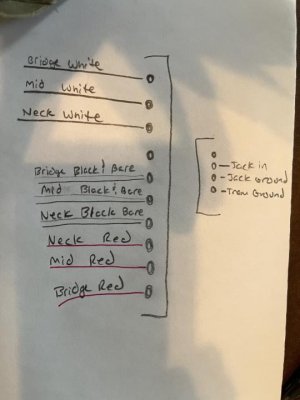 Bridge White
Mid White
Neck White
Bridge Black & Bare
Mid Black & Bare
Neck Black Bare
Neck Red
Mid Red
Bridge Red
Jack in
Jack Ground
Trem Ground